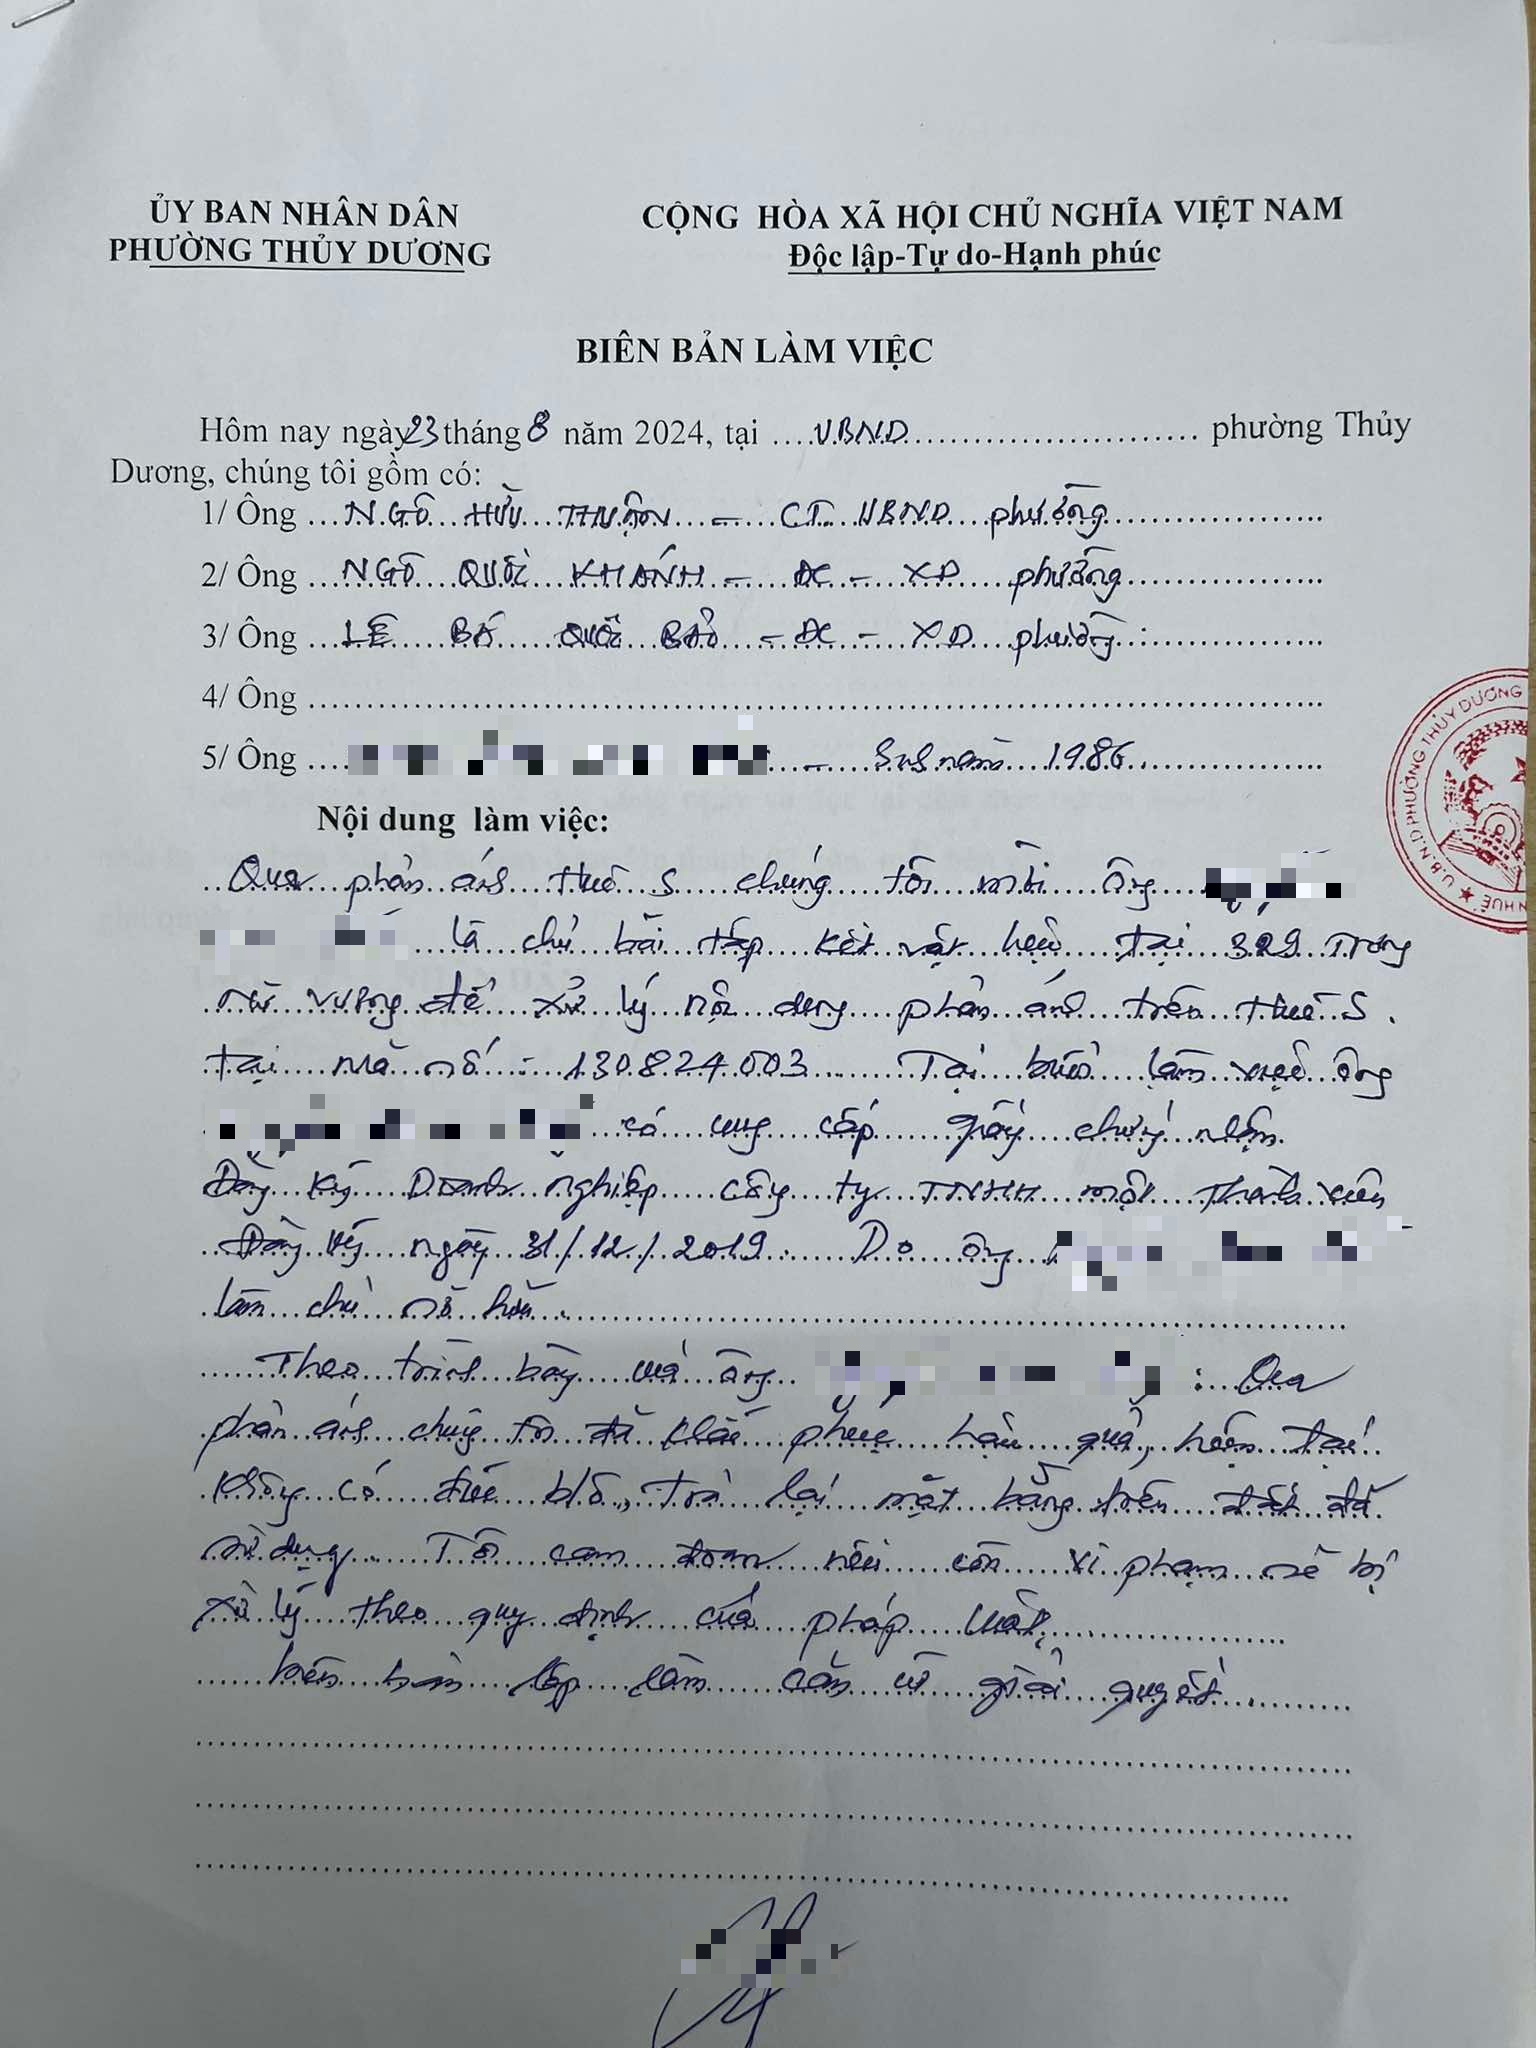 ỦY BAN NHÂN DÂN
PHƯỜNG THỦY DƯƠNG
CỘNG HÒA XÃ HỘI CHỦ NGHĨA VIỆT NAM
Độc lập-Tự do-Hạnh phúc
BIÊN BẢN LÀM VIỆC
Hôm nay ngày 23 tháng 8 năm 2024, tại ....UBND.............................. phường Thủy
Dương, chúng tôi gồm có:
1/ Ông ... NGÔ HỮU THUẬN - CT UBND phường
2/ Ông ... NGÔ QUỐC KHÁNH - ĐC - XD phường
3/ Ông ... LÊ BÁ QUỐC BẢO - ĐC - XD phường
4/ Ông
5/ Ông ... - Sinh năm 1986
Nội dung làm việc:
Qua phản ánh Huế S chúng tôi mời ông
là chủ bãi tập kết vật liệu tại 329 Trưng
nữ vương để xử lý nội dung phản ánh trên Huế S.
tại mã số: 130824.003. Tại buổi làm việc ông
có cung cấp giấy chứng nhận
Đăng ký Doanh nghiệp công ty TNHH một thành viên
Đăng ký ngày 31/12/2019. Do ông
làm chủ sở hữu.
Theo trình bày của ông : Qua
phản ánh chúng tôi đã khắc phục hậu quả, hiện tại
không có đúc blô, trả lại mặt bằng trên đất đã
sử dụng. Tôi cam đoan nếu còn vi phạm sẽ bị
xử lý theo quy định của pháp luật.
biên bản lập làm căn cứ giải quyết.
U.B.N.D PHƯỜNG THỦY DƯƠNG